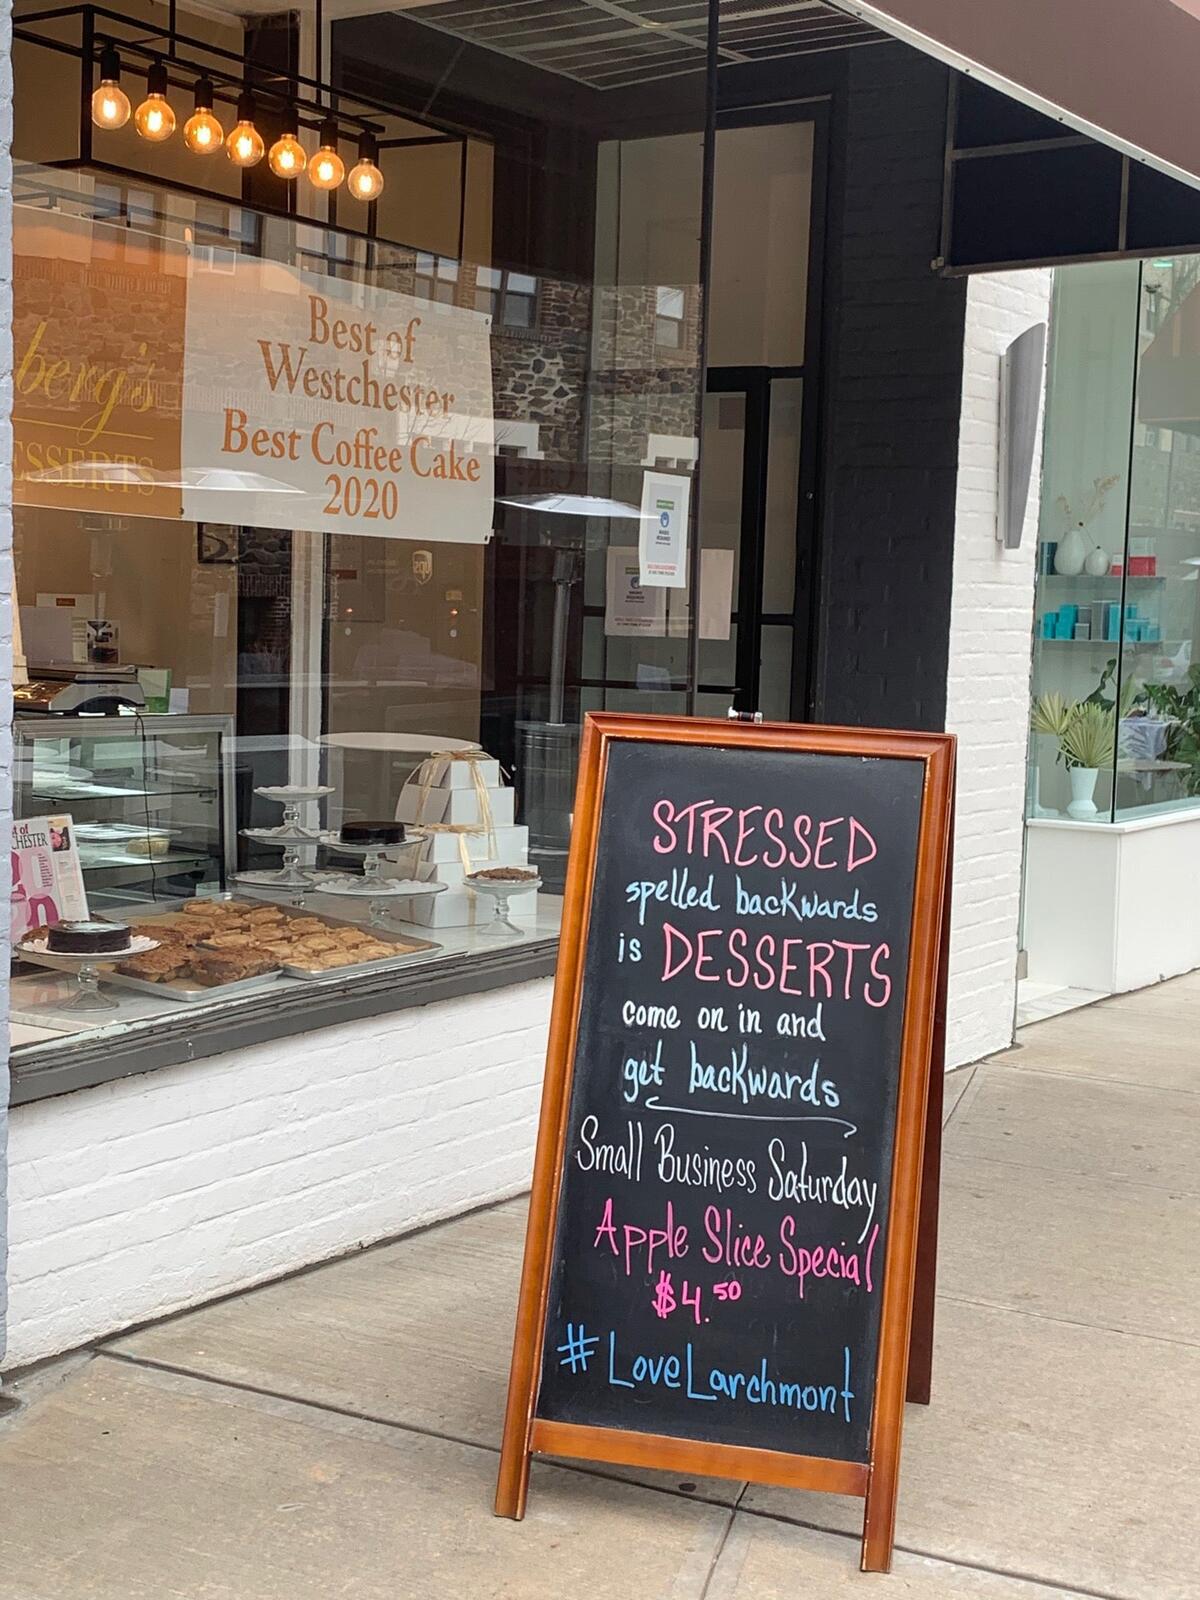 berg's
DESSERTS
Best of
Westchester
Best Coffee Cake
2020
ups
MASKS
REQUIRED
STRESSED
spelled backwards
is DESSERTS
come on in and
get backwards
Small Business Saturday
Apple Slice Special
$4.50
#LoveLarchmont